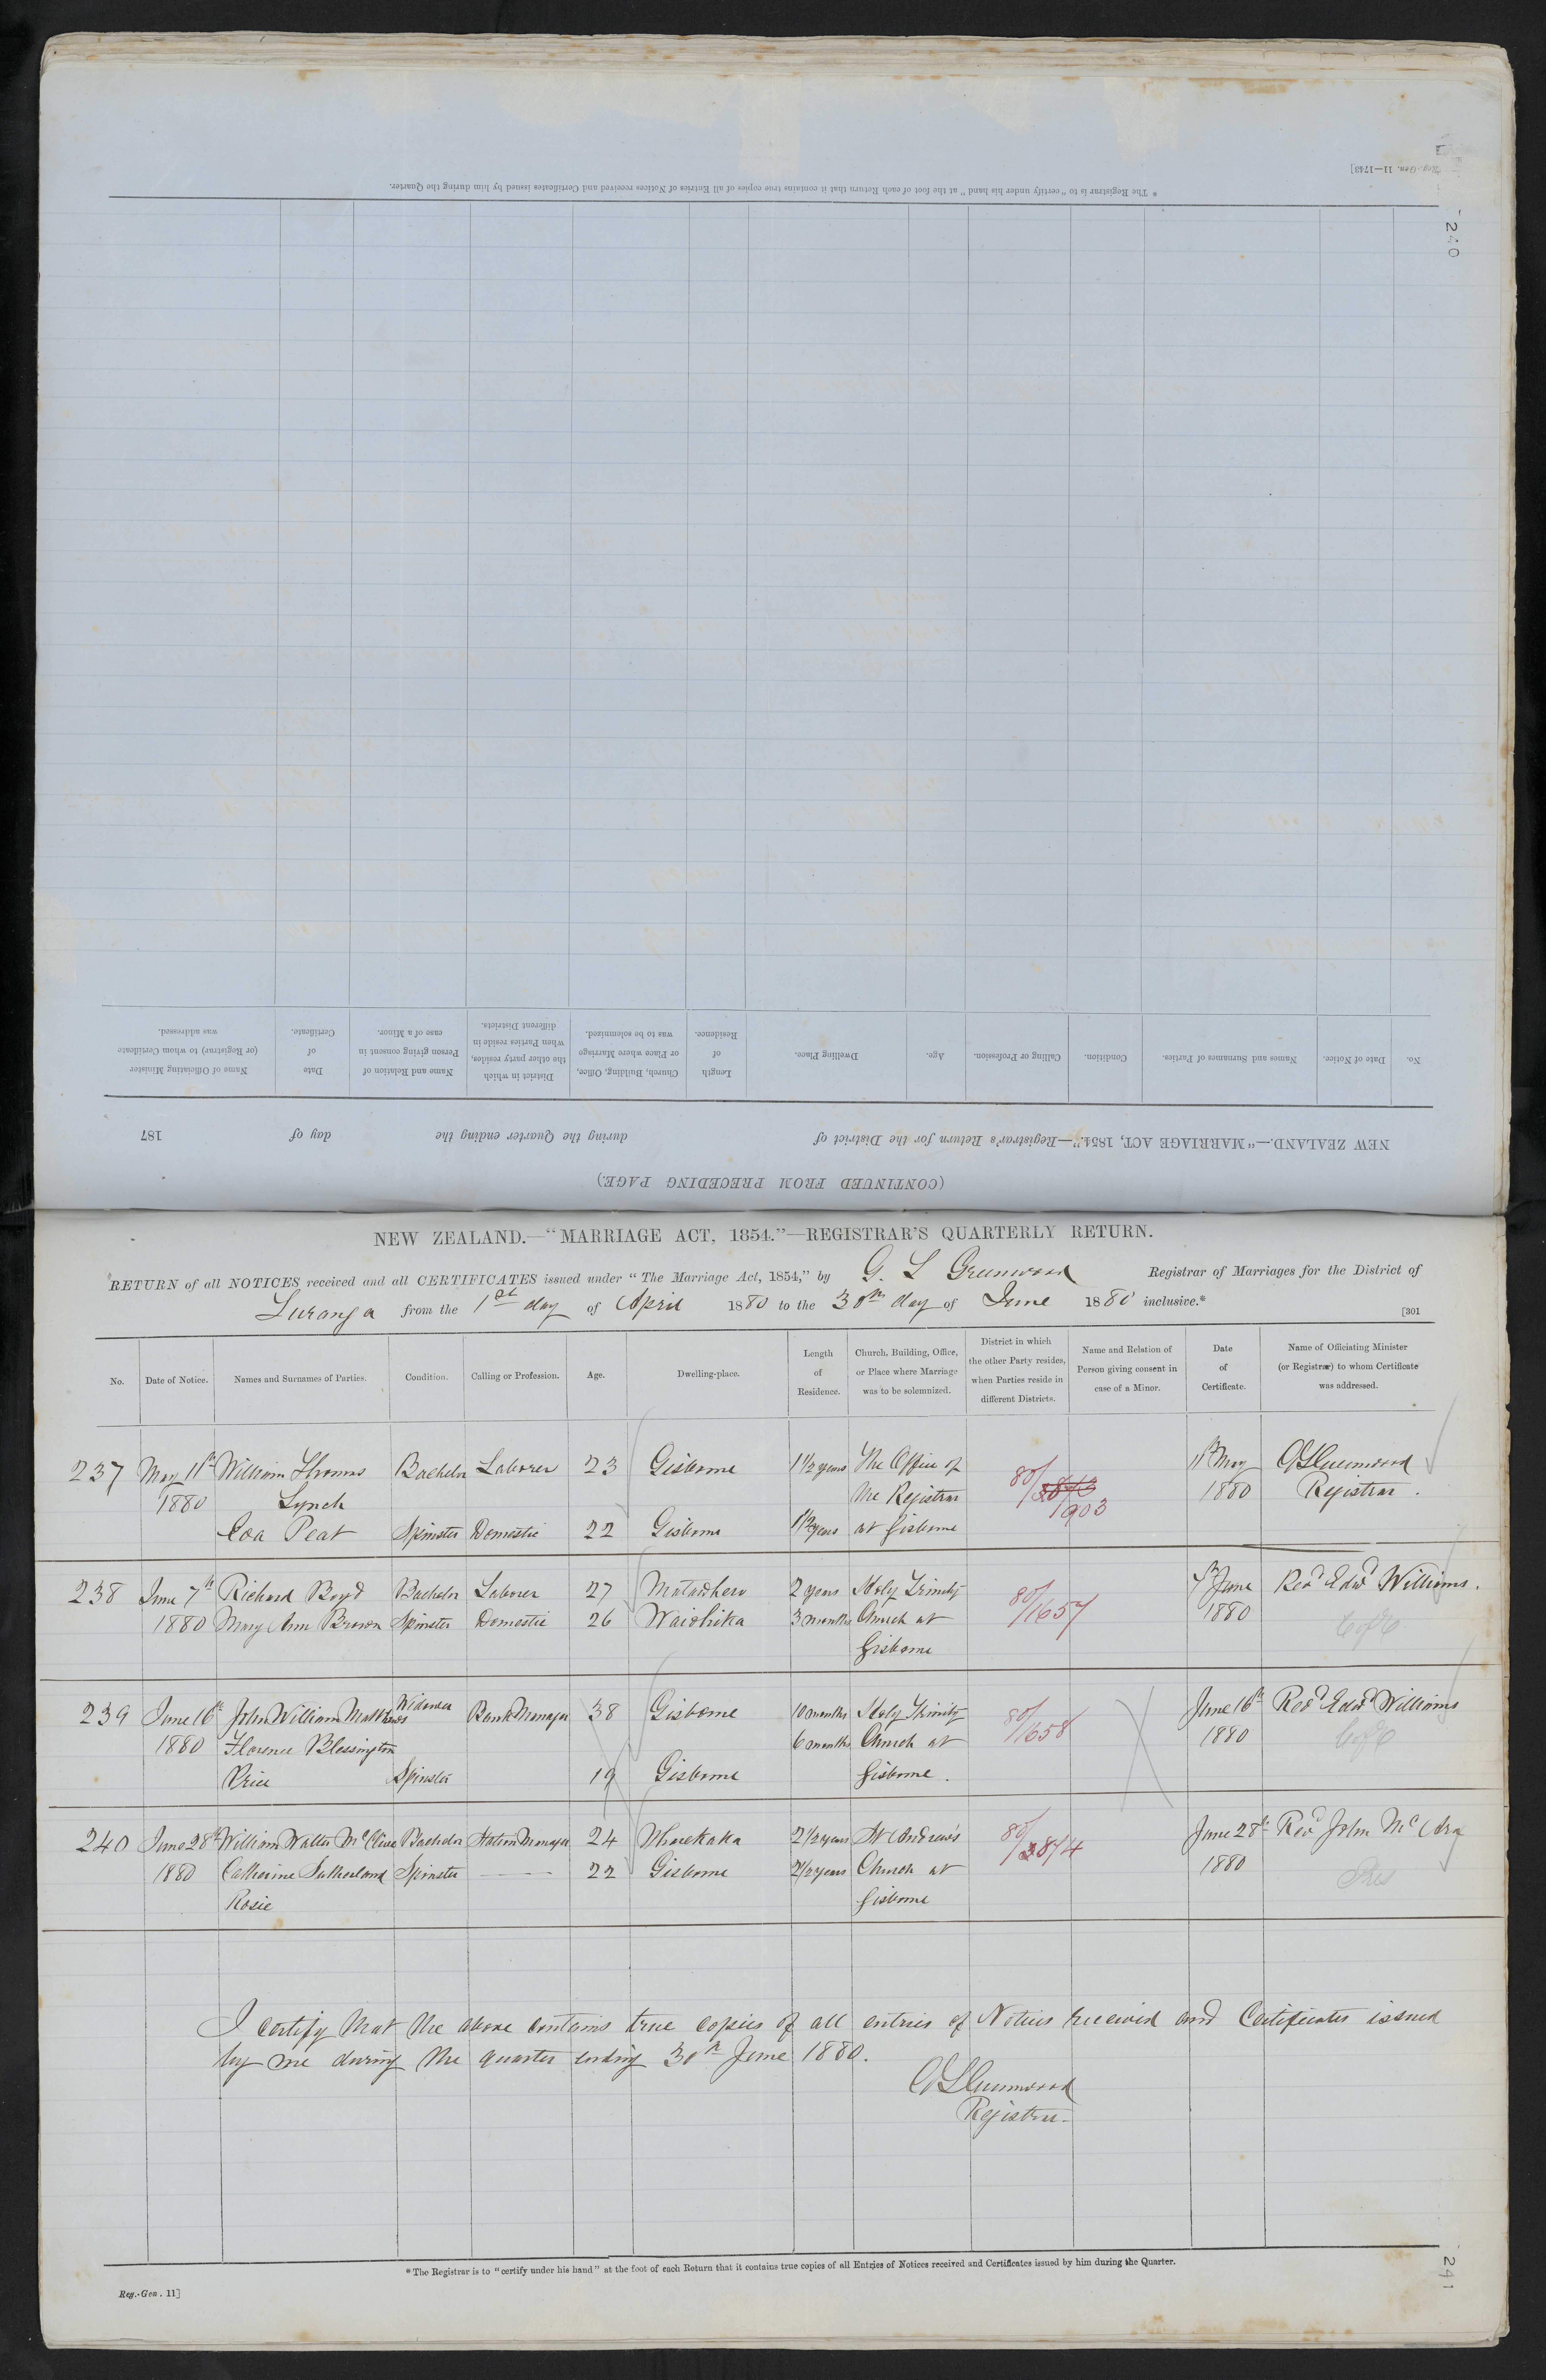 Reg.-Gen. 11—1743]
240
* The Registrar is to "certify under his hand" at the foot of each Return that it contains true copies of all Entries of Notices received and Certificates issued by him during the Quarter.
(CONTINUED FROM PRECEDING PAGE.)
NEW ZEALAND.—"MARRIAGE ACT, 1854."—Registrar's Return for the District of during the Quarter ending the day of 187
No. Date of Notice. Names and Surnames of Parties. Condition. Calling or Profession. Age. Dwelling Place. Length of Residence. Church, Building, Office, or Place where Marriage was to be solemnized. District in which the other party resides, when Parties reside in different Districts. Name and Relation of Person giving consent in case of a Minor. Date of Certificate. Name of Officiating Minister (or Registrar) to whom Certificate was addressed.
NEW ZEALAND.—"MARRIAGE ACT, 1854."—REGISTRAR'S QUARTERLY RETURN.
RETURN of all NOTICES received and all CERTIFICATES issued under "The Marriage Act, 1854," by G. L Greenwood Registrar of Marriages for the District of
Turanga from the 1st day of April 1880 to the 30th day of June 1880 inclusive.*
[301
No. Date of Notice. Names and Surnames of Parties. Condition. Calling or Profession. Age. Dwelling-place. Length of Residence. Church, Building, Office, or Place where Marriage was to be solemnized. District in which the other Party resides, when Parties reside in different Districts. Name and Relation of Person giving consent in case of a Minor. Date of Certificate. Name of Officiating Minister (or Registrar) to whom Certificate was addressed.
237 May 11th William Thomas Bachelor Laborer 23 Gisborne 1 1/2 years The Office of 80/ 11th May GLGreenwood
1880 Lynch the Registrar 1903 1880 Registrar.
Eva Peat Spinster Domestic 22 Gisborne 1 1/2 years at Gisborne
238 June 7th Richard Boyd Bachelor Laborer 27 Matawhero 2 years Holy Trinity 80/1657 7th June Revd Edwd Williams.
1880 Mary Ann Brown Spinster Domestic 26 Waiohika 3 months Church at 1880 C of E
Gisborne
239 June 16th John William Matthews Widower Bank Manager 38 Gisborne 10 months Holy Trinity 80/1658 June 16th Revd Edwd Williams
1880 Florence Blessington 6 months Church at 1880 C of E
Price Spinster 19 Gisborne Gisborne.
240 June 28th William Walter McClive Bachelor Station Manager 24 Whorekaka 2 1/2 years St Andrew's 80/3874 June 28th Revd John McAra
1880 Catherine Sutherland Spinster — — — 22 Gisborne 2 1/2 years Church at 1880 Pres
Rosie Gisborne
I certify that the above contains true copies of all entries of Notices received and Certificates issued
by me during the quarter ending 30th June 1880.
GLGreenwood
Registrar
* The Registrar is to "certify under his hand" at the foot of each Return that it contains true copies of all Entries of Notices received and Certificates issued by him during the Quarter.
Reg.-Gen. 11]
241